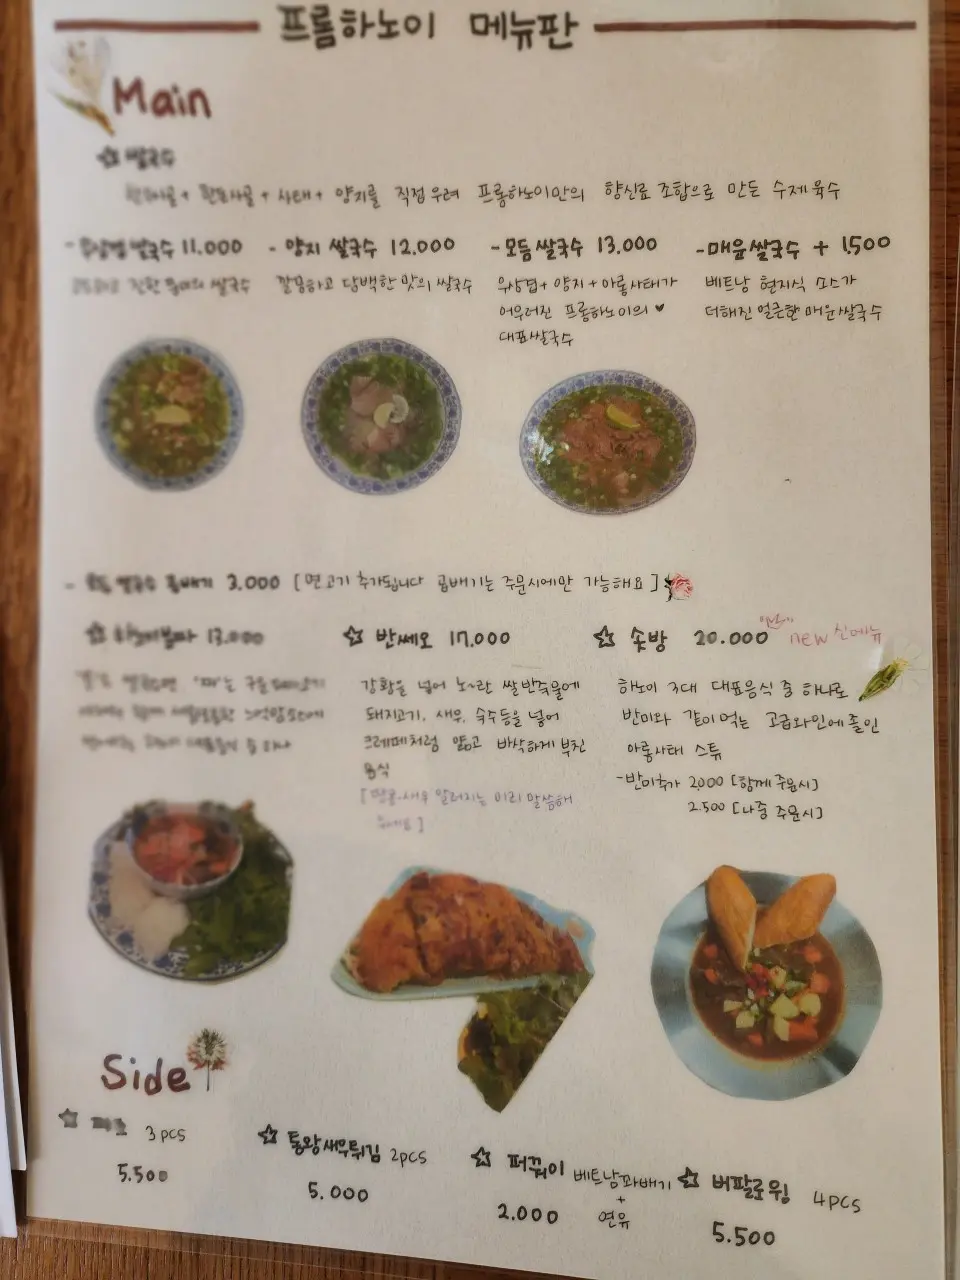 프롬하노이 메뉴판
Main
☆ 쌀국수
+ + 사태 + 양지를 직접 우려 프롬하노이만의 향신료 조합으로 만든 수제육수
- 쌀국수 11.000
진한 쌀국수
- 양지 쌀국수 12.000
깔끔하고 담백한 맛의 쌀국수
- 모듬 쌀국수 13.000
우삼겹 + 양지 + 아롱사태가
어우러진 프롬하노이의 ♥
대표쌀국수
- 매운쌀국수 + 1,500
베트남 현지식 소스가
더해진 얼큰한 매운쌀국수
- 쌀국수 곱배기 3.000 [면고기 추가됩니다 곱배기는 주문시에만 가능해요]
☆ 13.000
☆ 반쎄오 17.000
강황을 넣어 노란 쌀반죽물에
돼지고기, 새우, 숙주등을 넣어
크레페처럼 얇고 바삭하게 부친
음식
[땅콩.새우 알러지는 미리 말씀해
주세요]
☆ 솟방 20.000 NEW 신메뉴
하노이 3대 대표음식 중 하나로
반미와 같이 먹는 고급와인에 졸인
아롱사태 스튜
- 반미추가 2,000 [함께 주문시]
2.500 [나중 주문시]
Side
☆ 3pcs
5.500
☆ 통왕새우튀김 2pcs
5.000
☆ 퍼꿔이 베트남꽈배기
+
연유
2.000
☆ 버팔로윙 4pcs
5.500